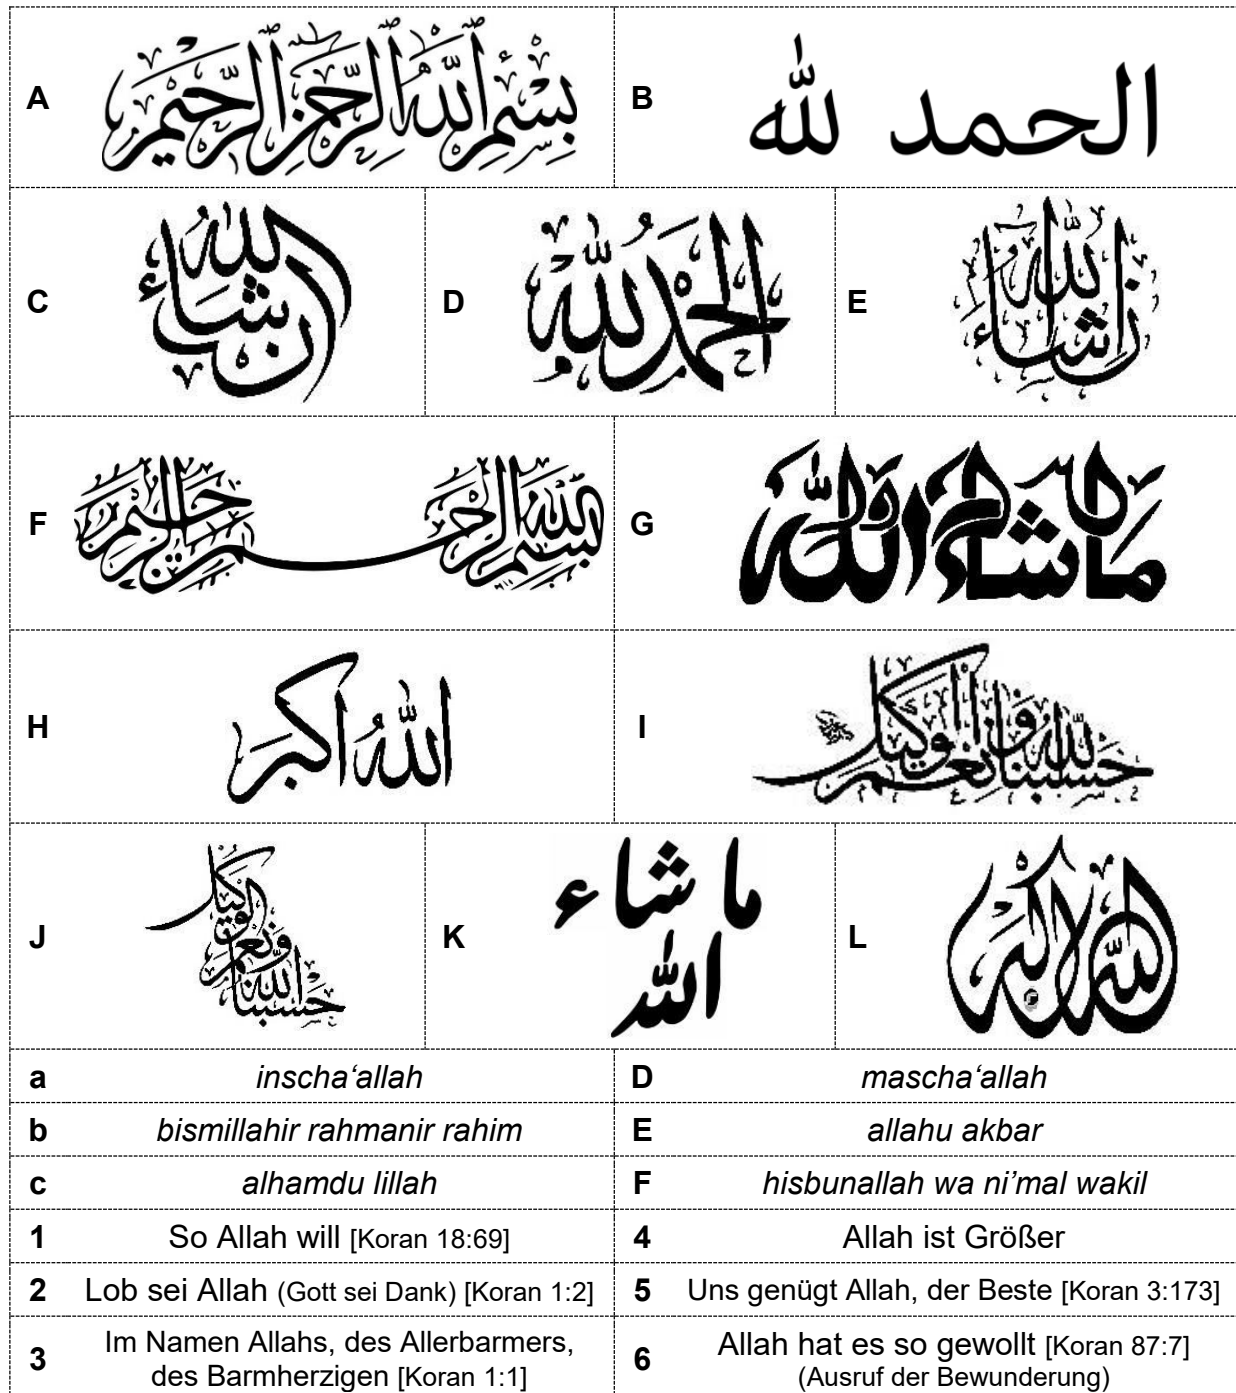 A بِسْمِ ٱللَّهِ ٱلرَّحْمَٰنِ ٱلرَّحِيمِ
B الحمد لله
C إن شاء الله
D الحمد لله
E إن شاء الله
F بسم الله الرحمن الرحيم
G ما شاء الله
H الله أكبر
I حسبنا الله ونعم الوكيل
J حسبنا الله ونعم الوكيل
K ما شاء
الله
L الله أكبر
a inscha‘allah D mascha‘allah
b bismillahir rahmanir rahim E allahu akbar
c alhamdu lillah F hisbunallah wa ni’mal wakil
1 So Allah will [Koran 18:69] 4 Allah ist Größer
2 Lob sei Allah (Gott sei Dank) [Koran 1:2] 5 Uns genügt Allah, der Beste [Koran 3:173]
3 Im Namen Allahs, des Allerbarmers,
des Barmherzigen [Koran 1:1]
6 Allah hat es so gewollt [Koran 87:7]
(Ausruf der Bewunderung)